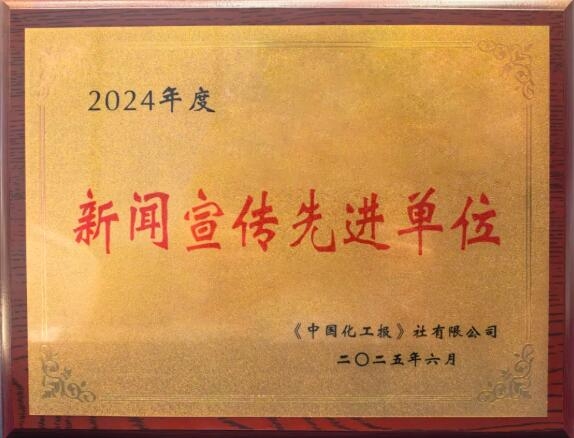 2024年度
新闻宣传先进单位
《中国化工报》社有限公司
二〇二五年六月